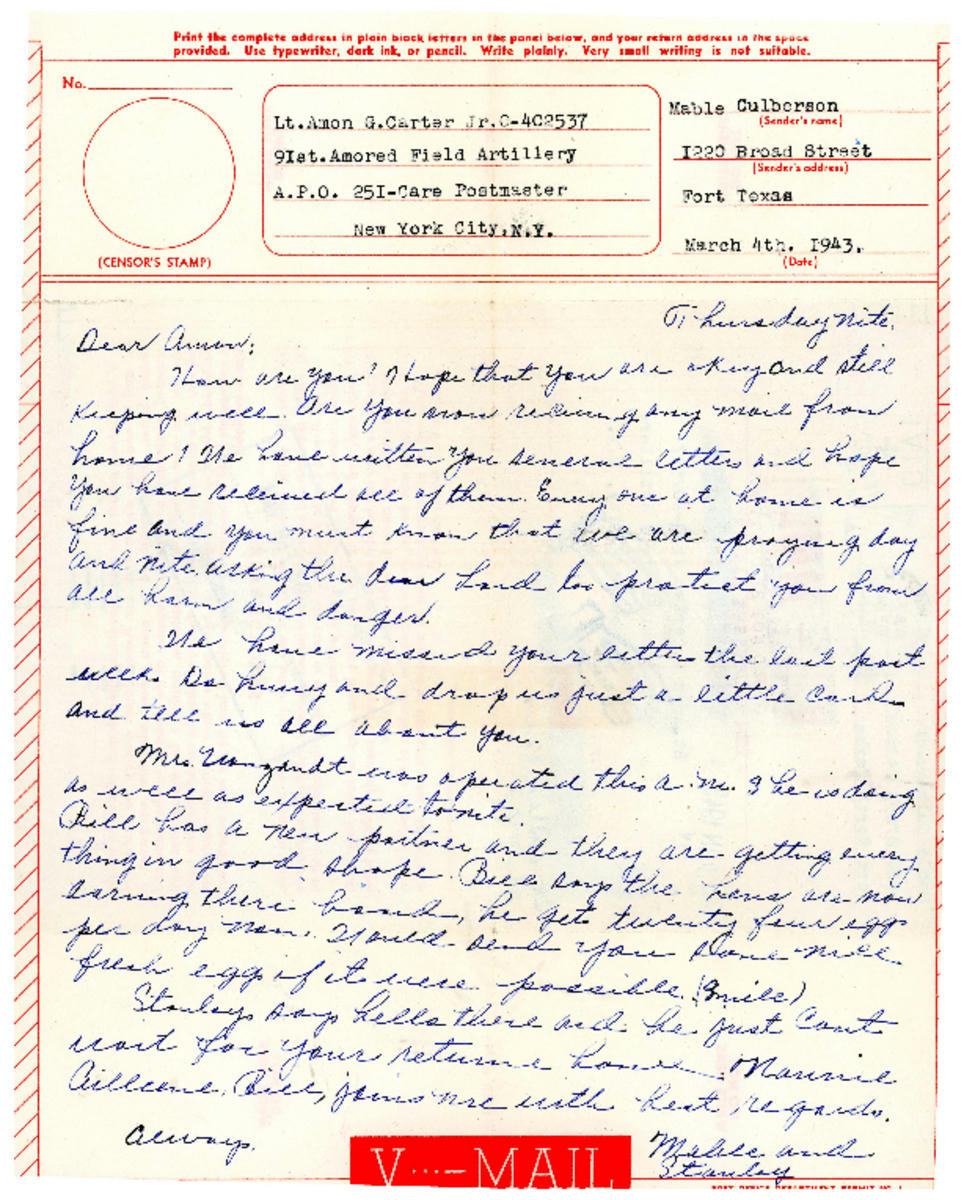 Print the complete address in plain block letters in the panel below, and your return address in the space
provided. Use typewriter, dark ink, or pencil. Write plainly. Very small writing is not suitable.
No.
(CENSOR'S STAMP)
Lt.Amon G.Carter Jr.O-402537
9Ist.Amored Field Artillery
A.P.O. 25I-Care Postmaster
New York City,N.Y.
Mable Culberson
(Sender's name)
I220 Broad Street
(Sender's address)
Fort Texas
March 4th. I943.
(Date)
Thursday Nite.
Dear Amon;
How are you? Hope that you are okey and still
Keeping well. Are you now receiving any mail from
home? We have written you several letters and hope
you have received all of them. Every one at home is
fine and you must know that we are praying day
and nite asking the dear Lord to protect you from
all harm and danger.
We have missed your letter the last past
week. Do hurry and drop us just a little card
and tell us all about you.
Mrs. Vanzandt was operated this a.m. She is doing
as well as expected tonite.
Bill has a new partner and they are getting every
thing in good shape. Bill says the hens are now
earning there board, he gets twenty four eggs
per day now. Would send you some nice
fresh egg if it were possible. (Smile)
Stanley says hello there and he just can't
wait for your returne home. Mannie
Aillene, Bill, joins me with best regards.
Always.
Mable and
Stanley
V···—MAIL
POST OFFICE DEPARTMENT PERMIT NO. 1